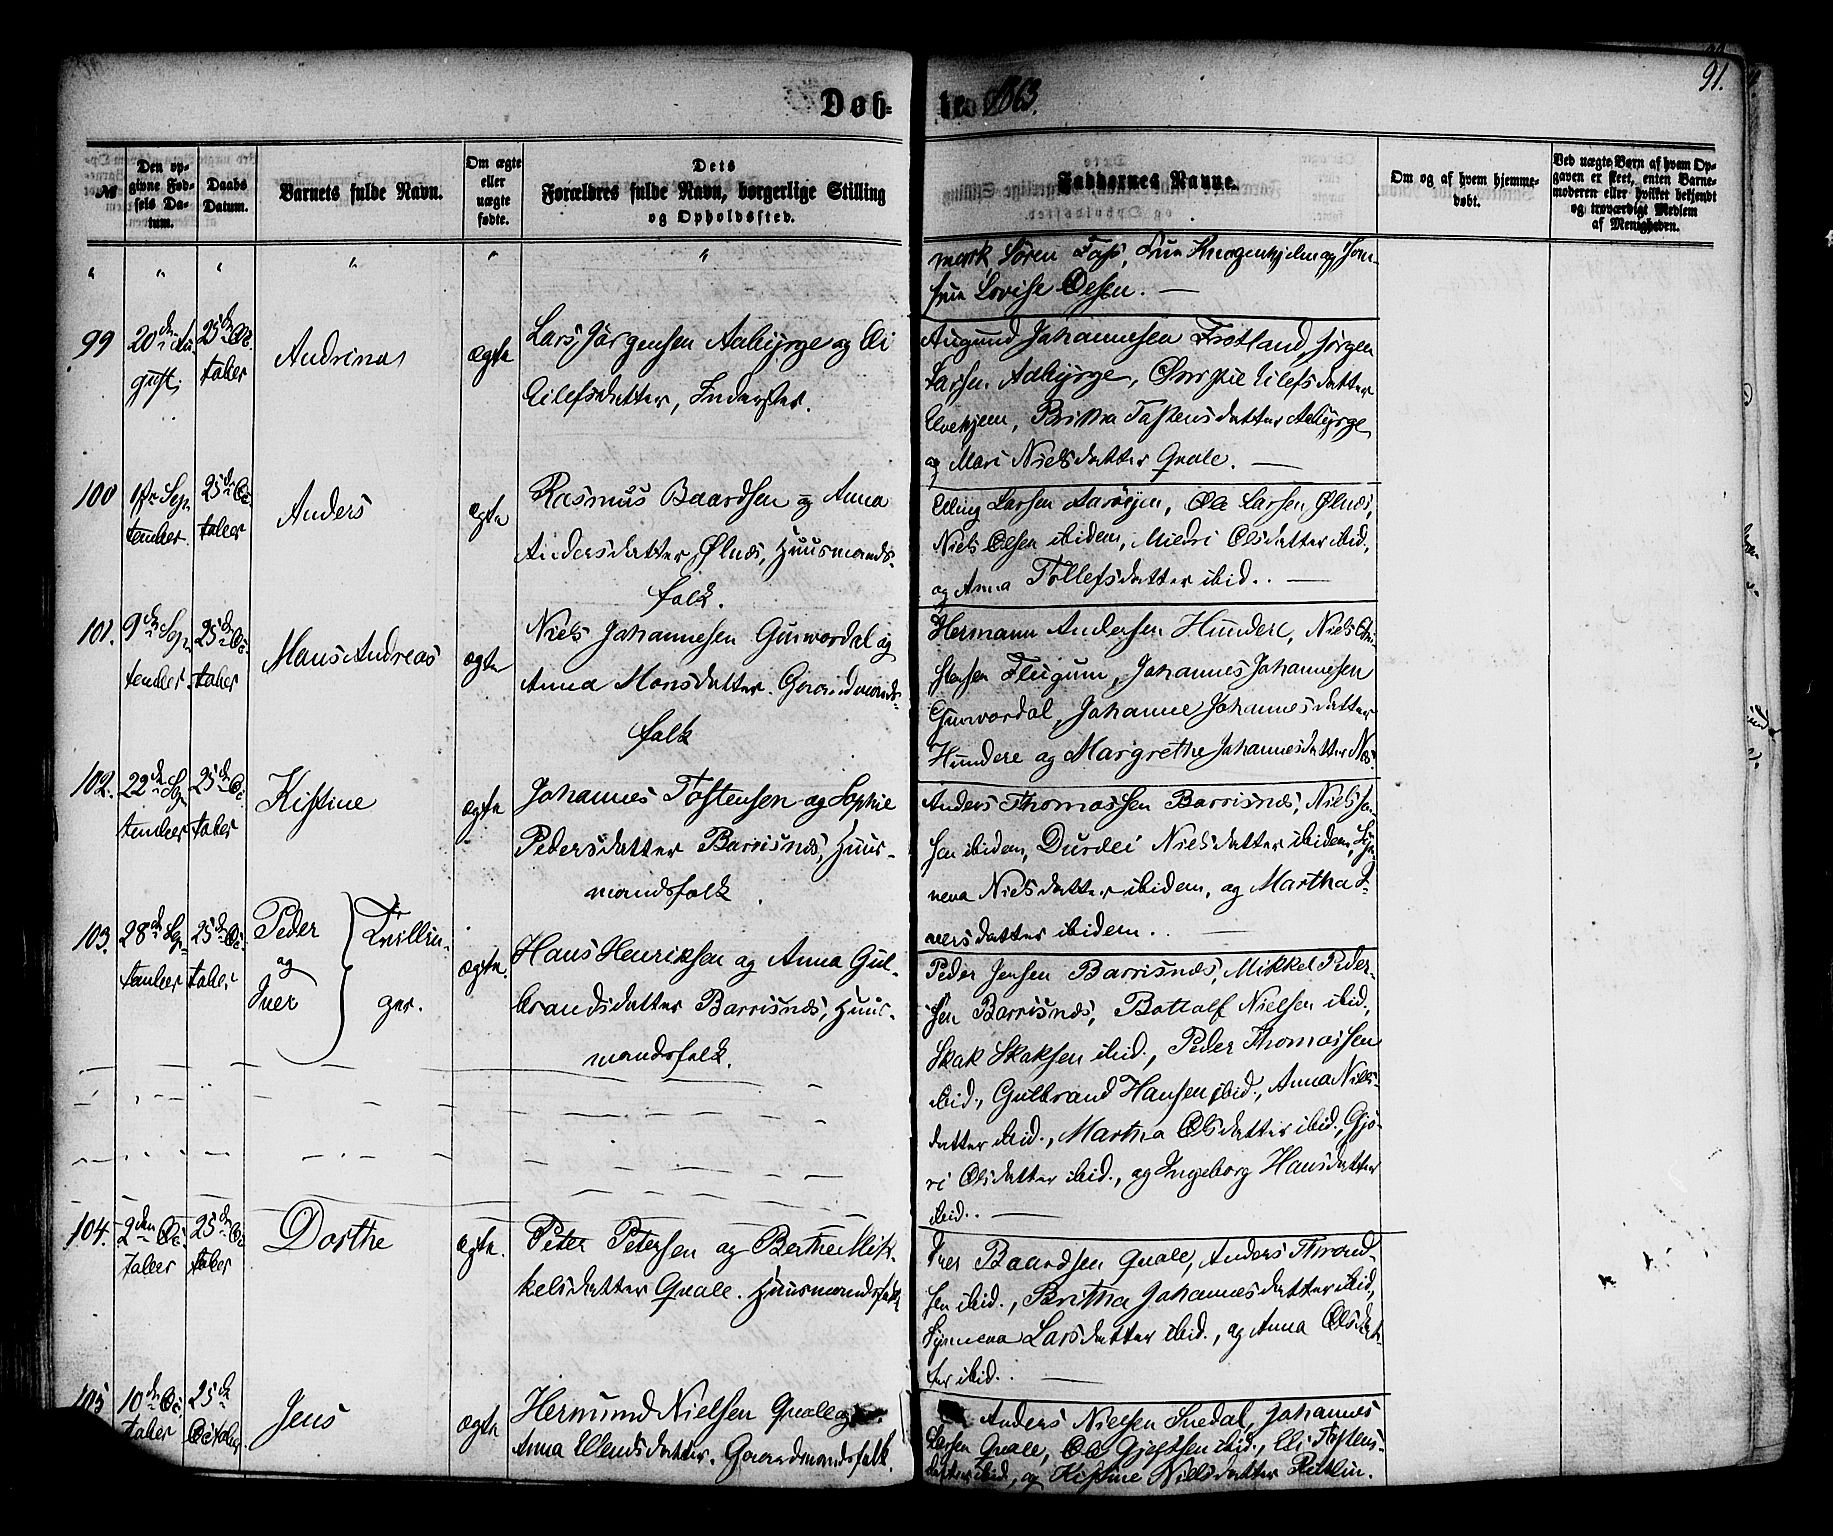 Døb-
te 1863.
91.
№
Den op-
givne Fød-
sels Da-
tum.
Daabs
Datum.
Barnets fulde Navn.
Om ægte
eller
uægte
fødte.
Dets
Forældres fulde Navn, borgerlige Stilling
og Opholdssted.
Faddernes Navne.
Om og af hvem hjemme-
døbt.
Ved uægte Børn af hvem Op-
gaven er skeet, enten Barne-
moderen eller hvilket bekjendt
og troværdigt Medlem
af Menigheden.
" " " " " "
mark, Sören Fass, Frue Knagenhjelm og Jom-
frue Lovise Olsen. —
99
20den Au-
gust.
25de Oc-
tober
Andrina
ægte
Lars Jørgensen Aabjørge og Eli
Eilefsdatter, Inderster.
Augund Johannesen Frotland, Jørgen
Larsen Aabjørge, Eilefsdatter
Britha Tostensdatter Aabjørge
og Mari Nielsdatter Quale. —
100
1ste Sep-
tember.
25de Oc-
tober
Anders
ægte
Rasmus Baardsen og Anna
Andersdatter Ølnæs, Huusmands-
folk.
Elling Larsen Aarøyen, Ole Larsen Ølnæs,
Niels Olsen ibidem, Olsdatter ibid,
og Anna Tollefsdatter ibid. —
101.
9de Sep-
tember.
25de Oc-
tober
Hans Andreas
ægte
Niels Johannesen Gunvordal og
Anna Monsdatter. Gaardmands-
folk
Hermann Andersen Hundere, Niels Chri-
stensen Flugum, Johannes Johannesen
Gunvordal, Johanne Johannesdatter
Hundere og Margrethe Johannesdatter Næs
102.
22de Sep-
tember
25de Oc-
tober
Kistine
ægte
Johannes Tostensen og Sophie
Pedersdatter Barsnæs, Huus-
mandsfolk.
Anders Thomassen Barsnæs, Niels
sen ibidem, Durdei Nielsdatter ibidem, Syn-
neva Nielsdatter ibidem, og Martha I-
versdatter ibidem. —
103.
28de Sep-
tember
25de Oc-
tober
Peder
og
Iver
Tvillin-
ger.
ægte.
Hans Henriksen og Anna Gul-
brandsdatter Barsnæs, Huus-
mandsfolk.
Peder Jensen Barsnæs, Mikkel Peder-
sen Barsnæs, Bottolf Nielsen ibid,
Skak Skaksen ibid., Peder Thomassen
ibid., Gulbrand Hansen ibid., Anna Niels-
datter ibid., Martha Olsdatter ibid., Gjø-
ri Olsdatter ibid., og Ingeborg Hansdatter
ibid. —
104.
2den Oc-
tober
25de Oc-
tober
Dorthe
ægte.
Peter Petersen og Berthe Mik-
kelsdatter Quale. Huusmandsfolk
Iver Baardsen Quale, Anders Thrond-
sen ibid., Britha Johannesdatter ibid,
Synneva Larsdatter ibid., og Anna Olsdat-
ter ibid. —
105
10de Oc-
tober
25de
October
Jens
ægte
Hermund Nielsen Quale og
Anna Jensdatter. Gaardmandsfolk.
Anders Nielsen Snedal, Johannes
Quale, Ole Gjestsen ibid., Eli Tostens-
datter ibid., og Kistine Nielsdatter